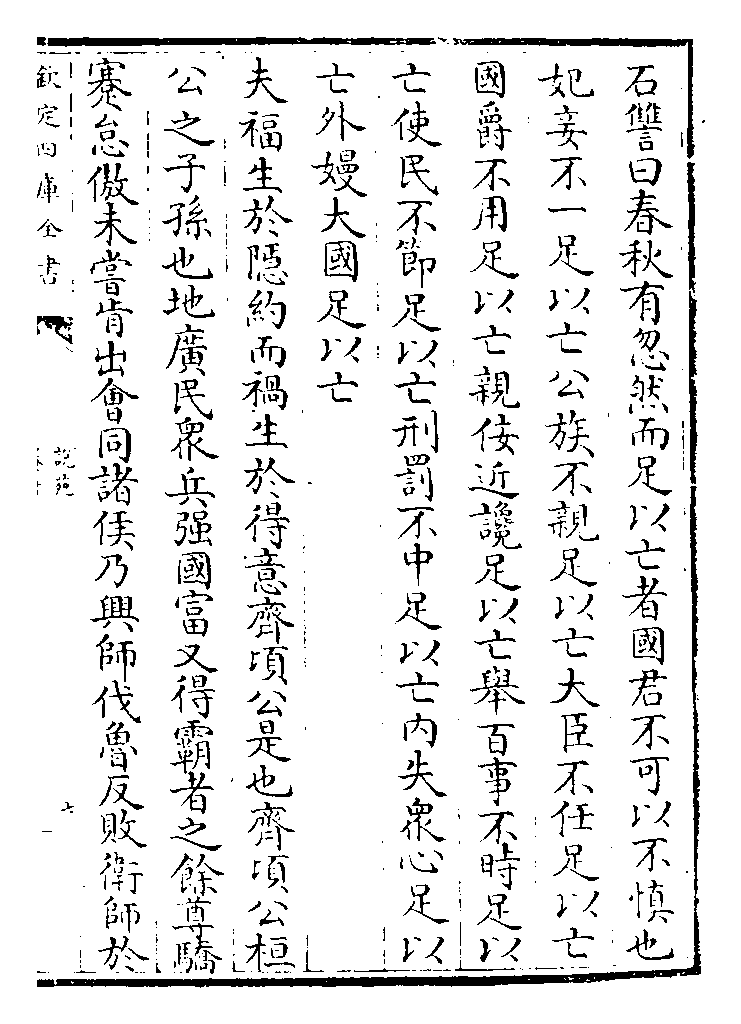 石讐曰春秋有忽然而足以亡者國君不可以不慎也
妃妾不一足以亡公族不親足以亡大臣不任足以亡
國爵不用足以亡親佞近讒足以亡舉百事不時足以
亡使民不節足以亡刑罰不中足以亡内失衆心足以
亡外嫚大國足以亡
夫福生於隠約而禍生於得意齊頃公是也齊頃公桓
公之子孫也地廣民衆兵强國富又得霸者之餘尊驕
蹇怠傲未嘗肯出會同諸侯乃興師伐魯反敗衛師於
欽定四庫全書
說苑
七